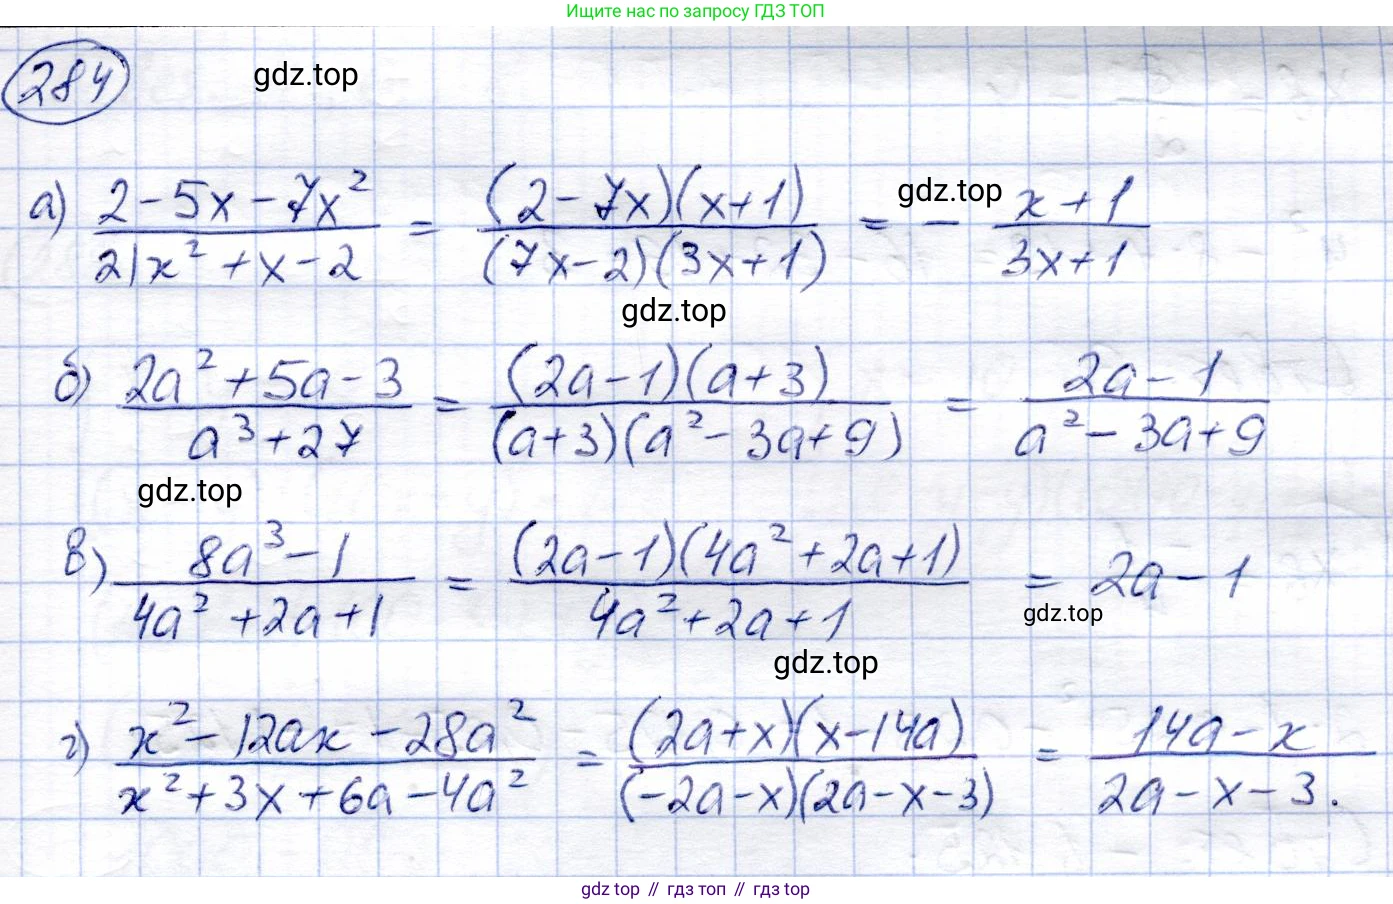 Ищите нас по запросу ГДЗ ТОП
284
gdz.top
а) (2 - 5x - 7x²)/(21x² + x - 2) = ((2 - 7x)(x + 1))/((7x - 2)(3x + 1)) = - (x + 1)/(3x + 1)
gdz.top
gdz.top
б) (2a² + 5a - 3)/(a³ + 27) = ((2a - 1)(a + 3))/((a + 3)(a² - 3a + 9)) = (2a - 1)/(a² - 3a + 9)
gdz.top
в) (8a³ - 1)/(4a² + 2a + 1) = ((2a - 1)(4a² + 2a + 1))/(4a² + 2a + 1) = 2a - 1
gdz.top
gdz.top
г) (x² - 12ax - 28a²)/(x² + 3x + 6a - 4a²) = ((2a + x)(x - 14a))/((-2a - x)(2a - x - 3)) = (14a - x)/(2a - x - 3).
gdz top // гдз топ // гдз top